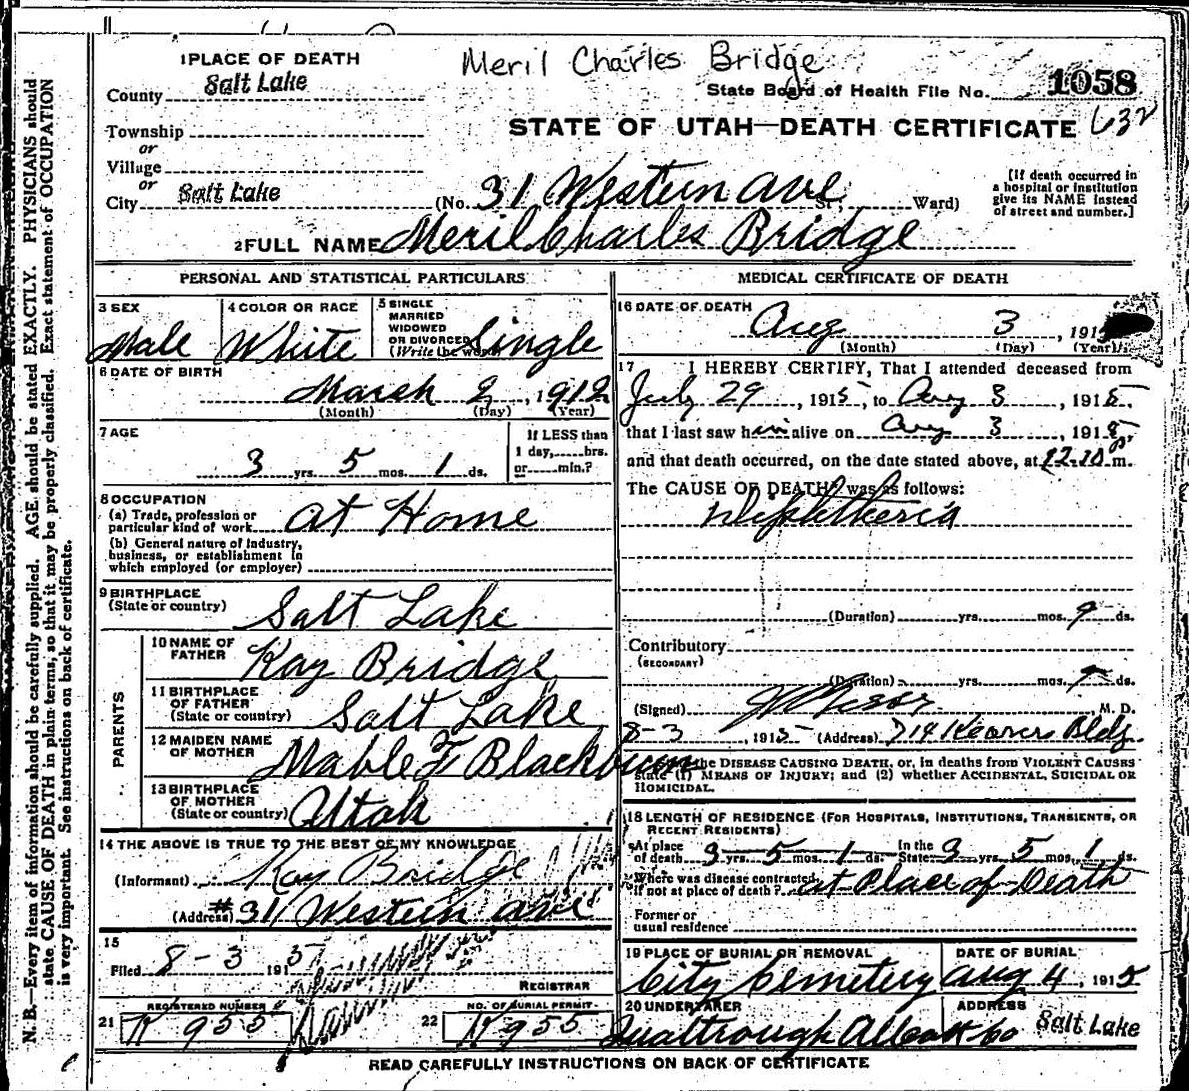 Meril Charles Bridge
1 PLACE OF DEATH
County Salt Lake
State Board of Health File No. 1058
Township
or
STATE OF UTAH—DEATH CERTIFICATE 632
Village
or
City Salt Lake (No. 31 Western Ave St., Ward)
[If death occurred in
a hospital or institution
give its NAME instead
of street and number.]
2 FULL NAME Meril Charles Bridge
PERSONAL AND STATISTICAL PARTICULARS
3 SEX
Male
4 COLOR OR RACE
White
5 SINGLE
MARRIED
WIDOWED
OR DIVORCED
(Write the word)
Single
6 DATE OF BIRTH
March 2, 1912
(Month) (Day) (Year)
7 AGE
3 yrs. 5 mos. 1 ds.
If LESS than
1 day,.....hrs.
or.....min.?
8 OCCUPATION
(a) Trade, profession or
particular kind of work At Home
(b) General nature of Industry,
business, or establishment in
which employed (or employer)
9 BIRTHPLACE
(State or country) Salt Lake
PARENTS
10 NAME OF
FATHER Kay Bridge
11 BIRTHPLACE
OF FATHER
(State or country) Salt Lake
12 MAIDEN NAME
OF MOTHER Mable F Blackburn
13 BIRTHPLACE
OF MOTHER
(State or country) Utah
14 THE ABOVE IS TRUE TO THE BEST OF MY KNOWLEDGE
(Informant) Kay Bridge
(Address) #31 Western ave
15
Filed 8-3 1915
REGISTRAR
21 REGISTERED NUMBER
K 955
22 NO. OF BURIAL PERMIT
K 955
MEDICAL CERTIFICATE OF DEATH
16 DATE OF DEATH
Aug 3, 1915
(Month) (Day) (Year)
17 I HEREBY CERTIFY, That I attended deceased from
July 29, 1915, to Aug 3, 1915.
that I last saw him alive on Aug 3, 1915,
and that death occurred, on the date stated above, at 12-10 p m.
The CAUSE OF DEATH* was as follows:
Diphtheria
(Duration) yrs. mos. 9 ds.
Contributory
(SECONDARY)
(Duration) yrs. mos. ds.
(Signed) M. D.
8-3, 1915 (Address) 714 Kearns Bldg.
the DISEASE CAUSING DEATH, or, in deaths from VIOLENT CAUSES
state (1) MEANS OF INJURY; and (2) whether ACCIDENTAL, SUICIDAL OR
HOMICIDAL.
18 LENGTH OF RESIDENCE (FOR HOSPITALS, INSTITUTIONS, TRANSIENTS, OR
RECENT RESIDENTS)
At place
of death 3 yrs. 5 mos. 1 ds. In the
State 3 yrs. 5 mos. 1 ds.
Where was disease contracted,
if not at place of death? at Place of Death
Former or
usual residence
19 PLACE OF BURIAL OR REMOVAL
City Cemetery
DATE OF BURIAL
Aug 4, 1915
20 UNDERTAKER
ADDRESS
Salt Lake
READ CAREFULLY INSTRUCTIONS ON BACK OF CERTIFICATE
N. B.—Every item of information should be carefully supplied. AGE should be stated EXACTLY. PHYSICIANS should
state CAUSE OF DEATH in plain terms, so that it may be properly classified. Exact statement of OCCUPATION
is very important. See instructions on back of certificate.